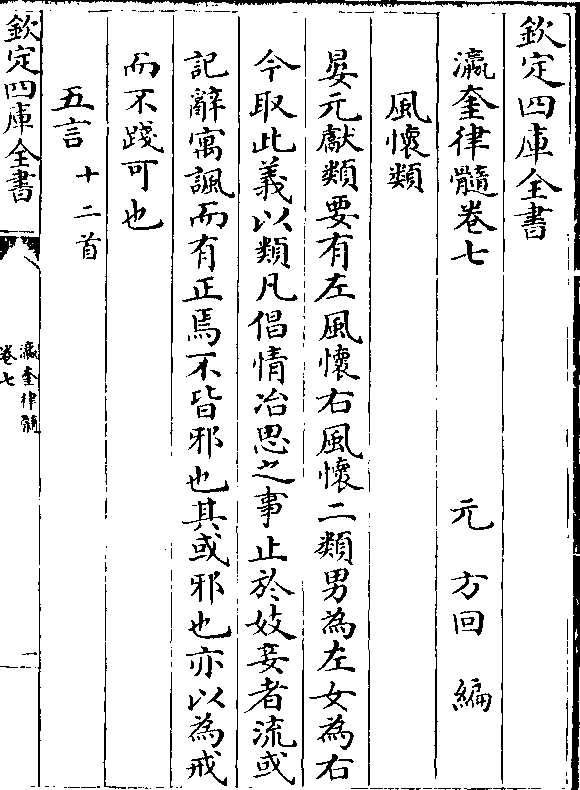 欽定四庫全書
瀛奎律髓卷七
元 方回 編
風懷類
晏元獻類要有左風懷右風懷二類男為左女為右
今取此義以類凡倡情冶思之事止於妓妾者流或
記辭寓諷而有正焉不皆邪也其或邪也亦以為戒
而不踐可也
五言 十二首
欽定四庫全書
瀛奎律髓
卷七